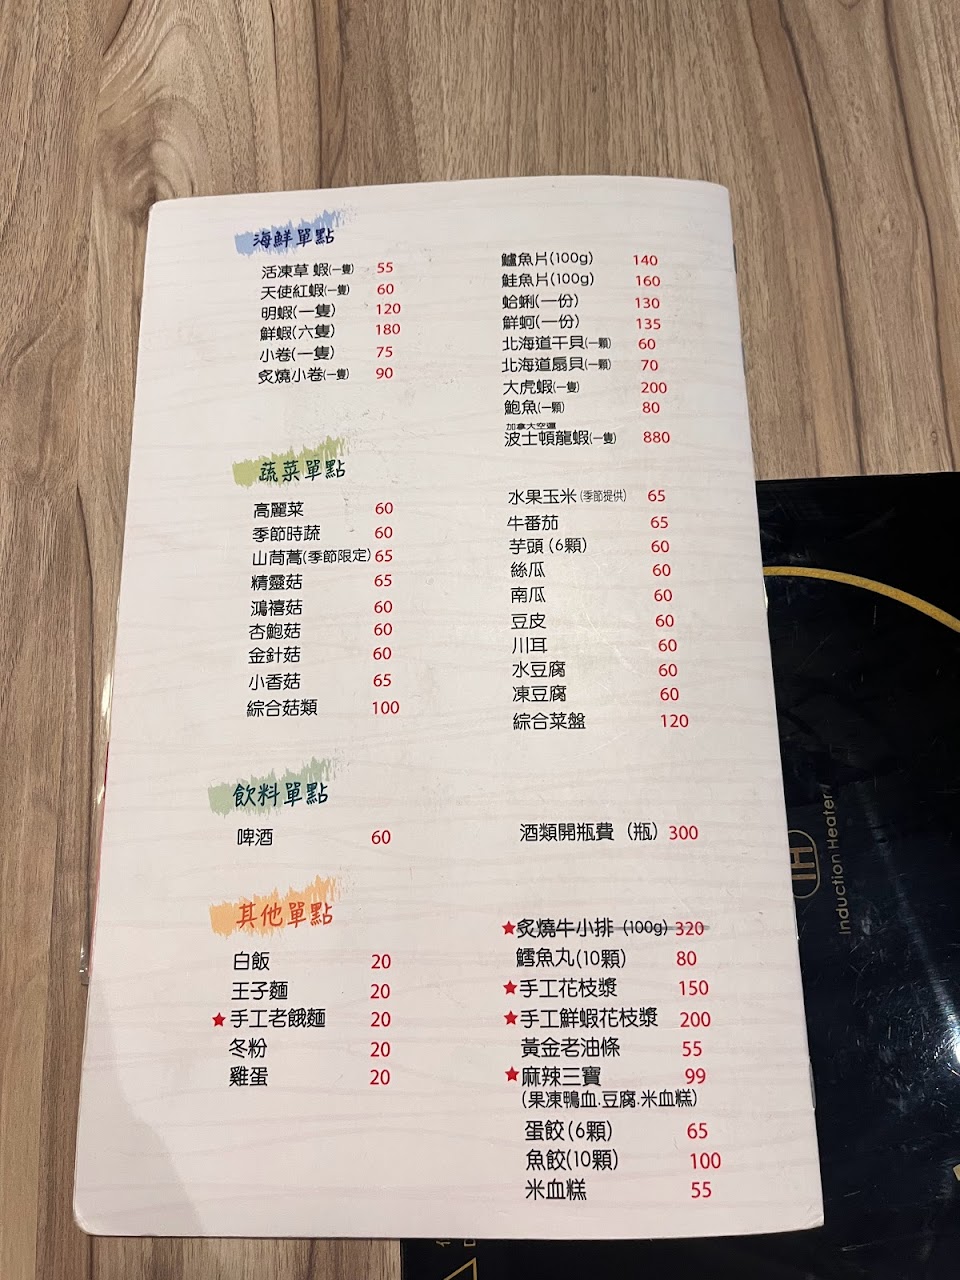 海鮮單點
活凍草蝦(一隻) 55
天使紅蝦(一隻) 60
明蝦(一隻) 120
鮮蝦(六隻) 180
小卷(一隻) 75
炙燒小卷(一隻) 90
鱸魚片(100g) 140
鮭魚片(100g) 160
蛤蜊(一份) 130
鮮蚵(一份) 135
北海道干貝(一顆) 60
北海道扇貝(一顆) 70
大虎蝦(一隻) 200
鮑魚(一顆) 80
加拿大空運
波士頓龍蝦(一隻) 880
蔬菜單點
高麗菜 60
季節時蔬 60
山茼蒿(季節限定) 65
精靈菇 65
鴻禧菇 60
杏鮑菇 60
金針菇 60
小香菇 65
綜合菇類 100
水果玉米(季節提供) 65
牛番茄 65
芋頭(6顆) 60
絲瓜 60
南瓜 60
豆皮 60
川耳 60
水豆腐 60
凍豆腐 60
綜合菜盤 120
飲料單點
啤酒 60
酒類開瓶費 (瓶) 300
其他單點
白飯 20
王子麵 20
★手工老餓麵 20
冬粉 20
雞蛋 20
★炙燒牛小排 (100g) 320
鱈魚丸(10顆) 80
★手工花枝漿 150
★手工鮮蝦花枝漿 200
黃金老油條 55
★麻辣三寶 99
(果凍鴨血.豆腐.米血糕)
蛋餃(6顆) 65
魚餃(10顆) 100
米血糕 55
IH
Induction Heater